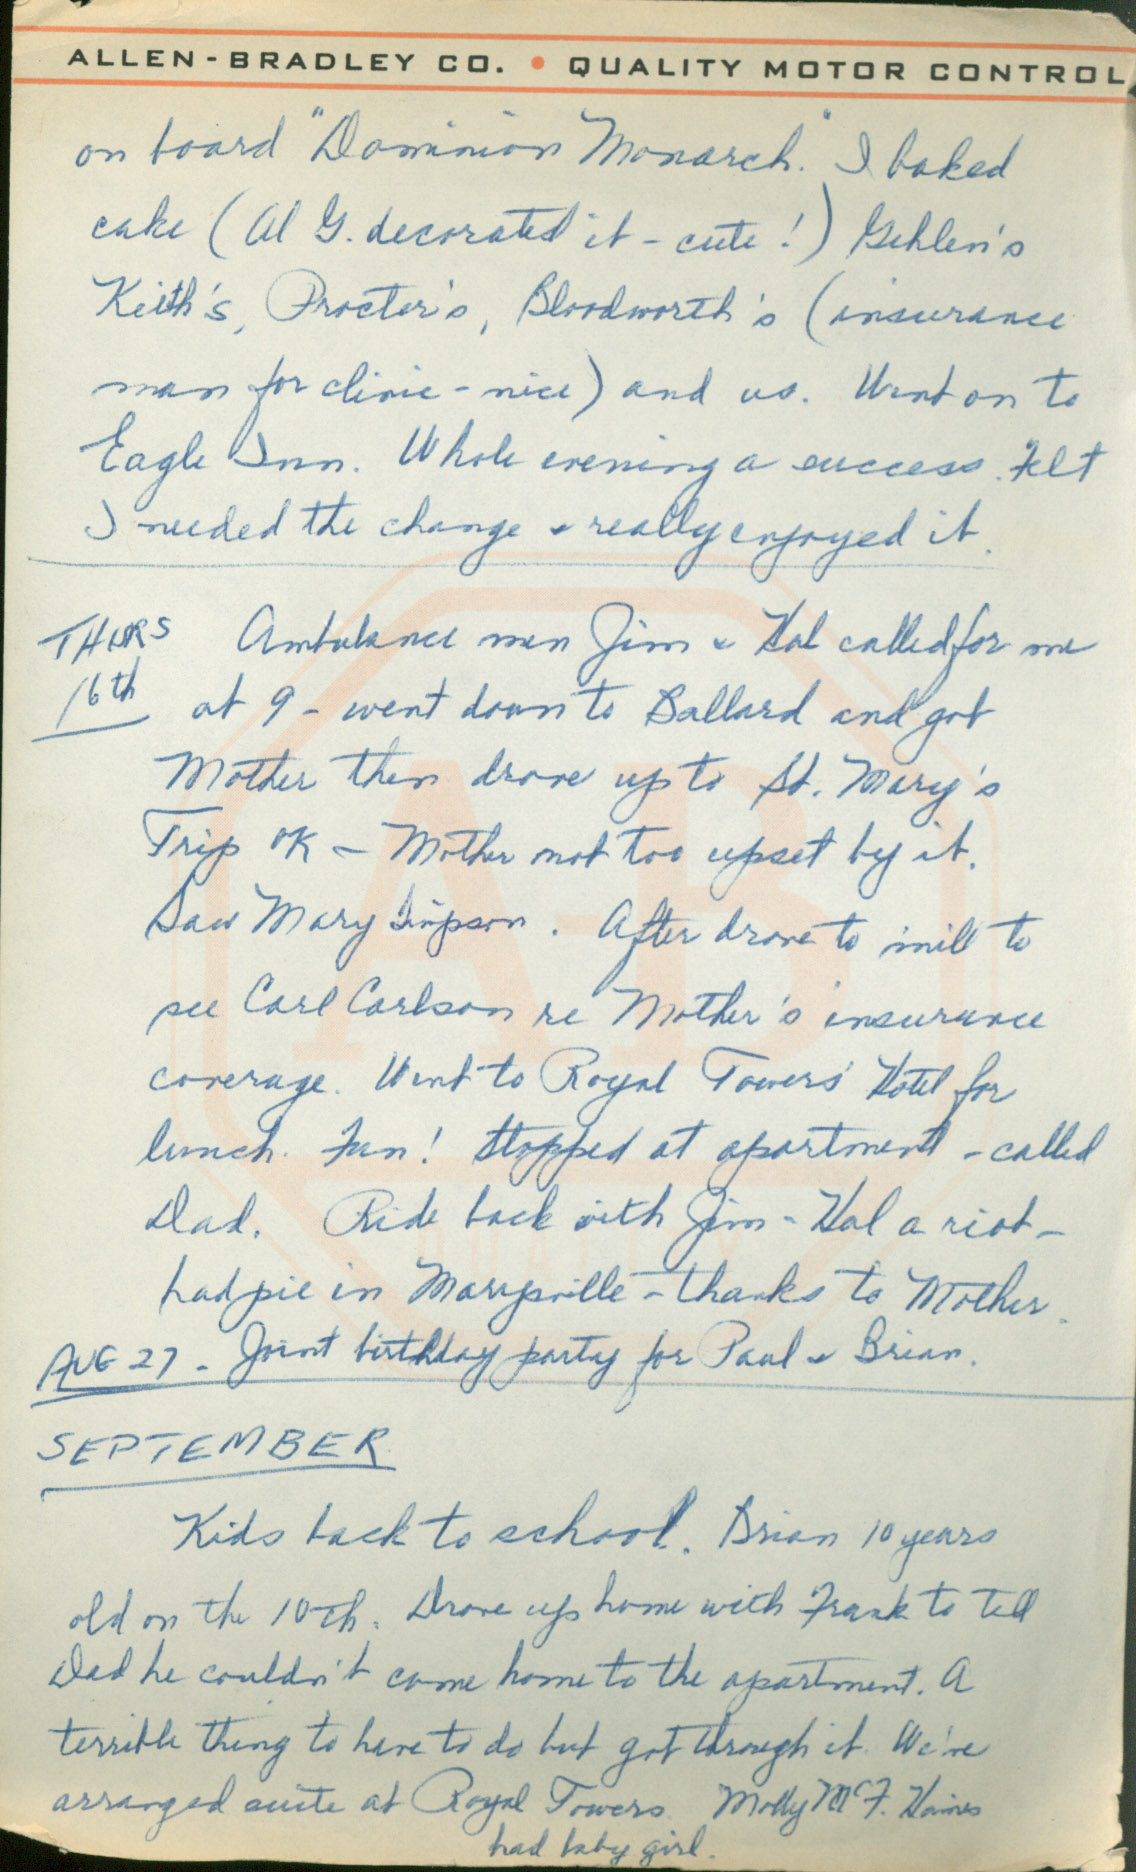 ALLEN-BRADLEY CO. • QUALITY MOTOR CONTROL
on board "Dominion Monarch." I baked
cake (Al G. decorated it - cute!) Gehlen's
Keith's, Procter's, Bloodworth's (insurance
man for clinic - nice) and us. Went on to
Eagle Inn. Whole evening a success. Felt
I needed the change & really enjoyed it.
THURS Ambulance men Jim & Hal called for me
16th at 9 - went down to Ballard and got
Mother then drove up to St. Mary's
Trip OK - Mother not too upset by it.
Saw Mary Simpson. After drove to mill to
see Carl Carlson re Mother's insurance
coverage. Went to Royal Towers Hotel for
lunch. Fun! Stopped at apartment - called
Dad. Ride back with Jim - Hal a riot -
had pie in Marysville - thanks to Mother.
AUG 27 - Joint birthday party for Paul & Brian.
SEPTEMBER
Kids back to school. Brian 10 years
old on the 10th. Drove up home with Frank to tell
Dad he couldn't come home to the apartment. A
terrible thing to have to do but got through it. We've
arranged suite at Royal Towers. Molly McF. Haines
had baby girl.